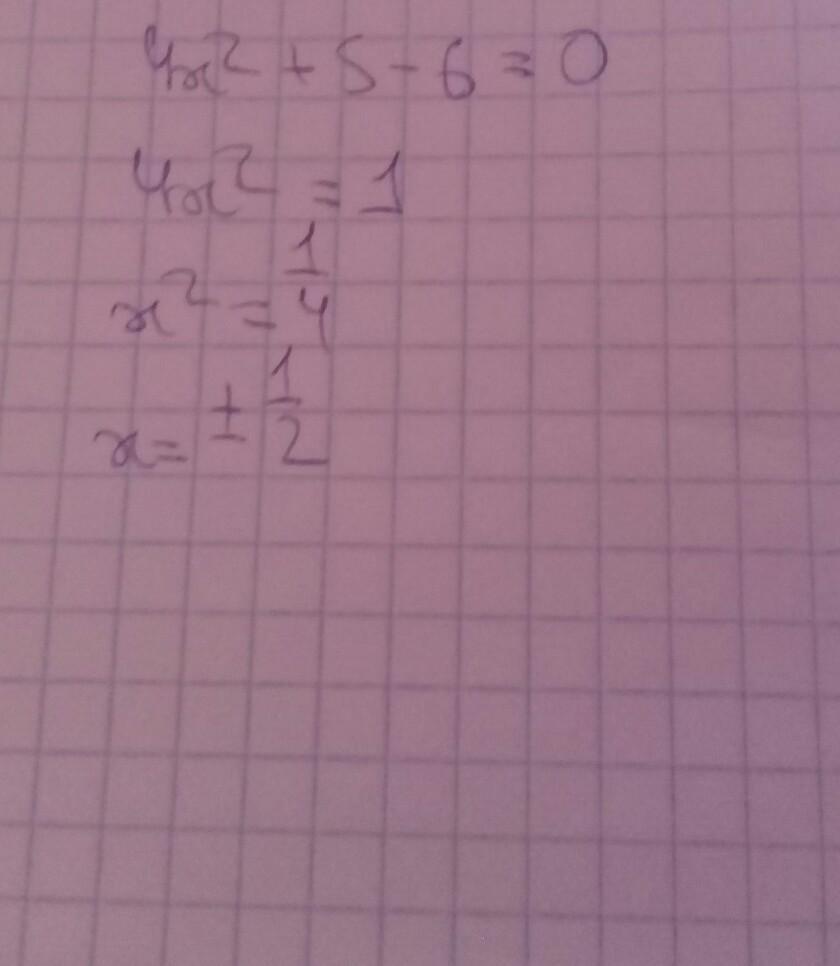 4x² + 5 - 6 = 0
4x² = 1
x² = 1/4
x = ± 1/2